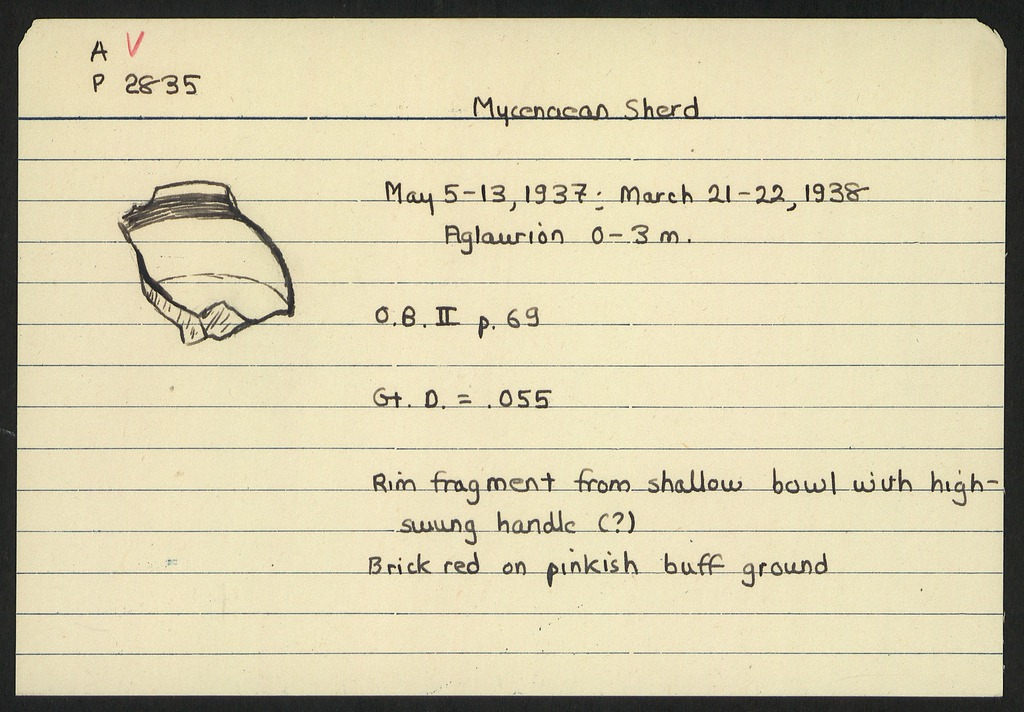 A V
P 2835
Mycenaean Sherd
May 5-13, 1937 : March 21-22, 1938
Aglaurion 0-3 m.
O.B. II p. 69
Gt. D. = .055
Rim fragment from shallow bowl with high-
swung handle (?)
Brick red on pinkish buff ground